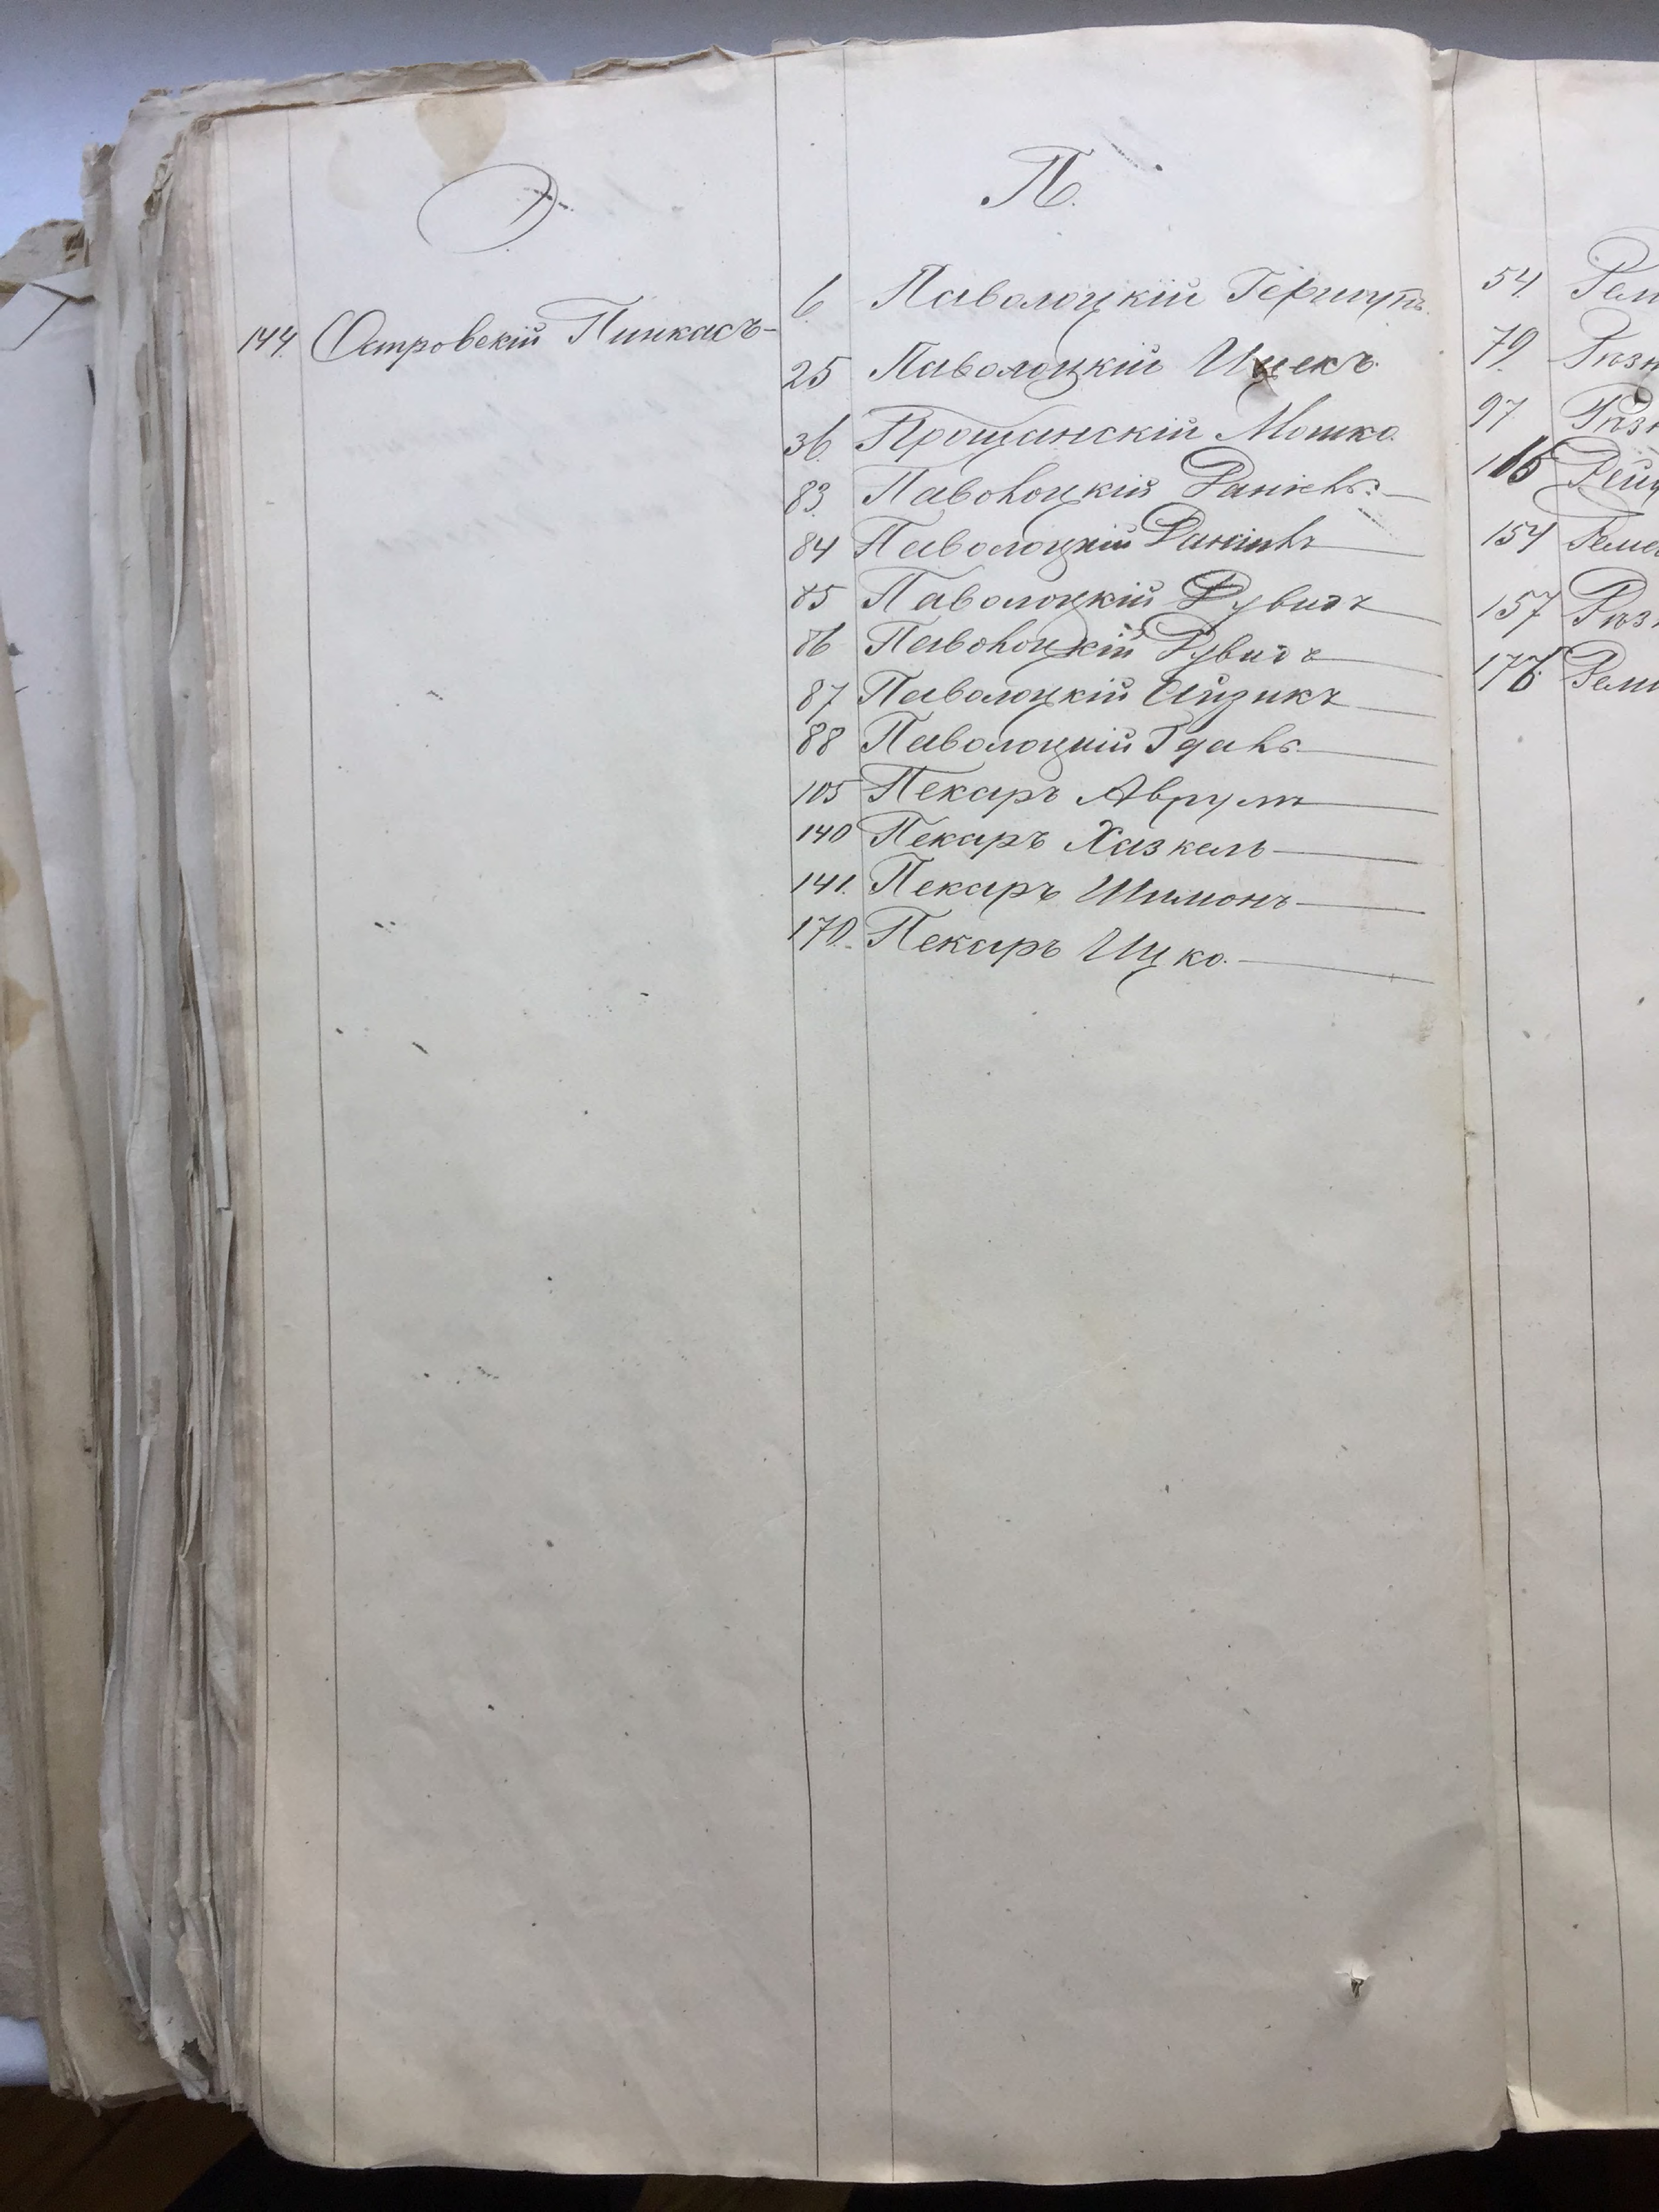 О.
144. Островскій Пинкасъ
П.
6. Паволоцкій Гершунъ.
25 Паволоцкій Ицекъ.
36. Прощанскій Мошко.
83. Паволоцкій Даніель
84 Паволоцкій
85 Паволоцкій Дувидъ
86 Паволоцкій Дувидъ
87 Паволоцкій Айзикъ
88 Паволоцкій
105 Пекаръ Аврумъ
140 Пекаръ Хазкель
141. Пекаръ Шимонъ
170. Пекаръ Ицко.
54.
79.
97
116
154
157
176